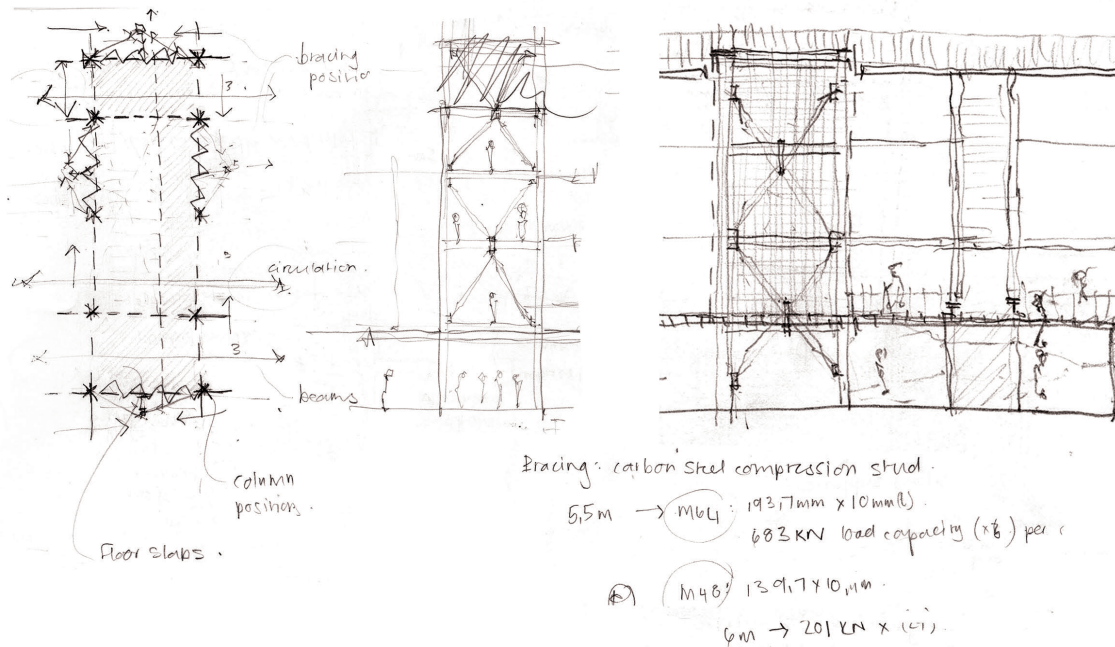 bracing
3
circulation.
3
beams
column
position.
Floor slabs.
Bracing: carbon steel compression stud.
5,5m → M64: 193,7mm x 10mm(t)
683 KN load capacity per
M48: 139,7 x 10mm
6m → 201 KN x